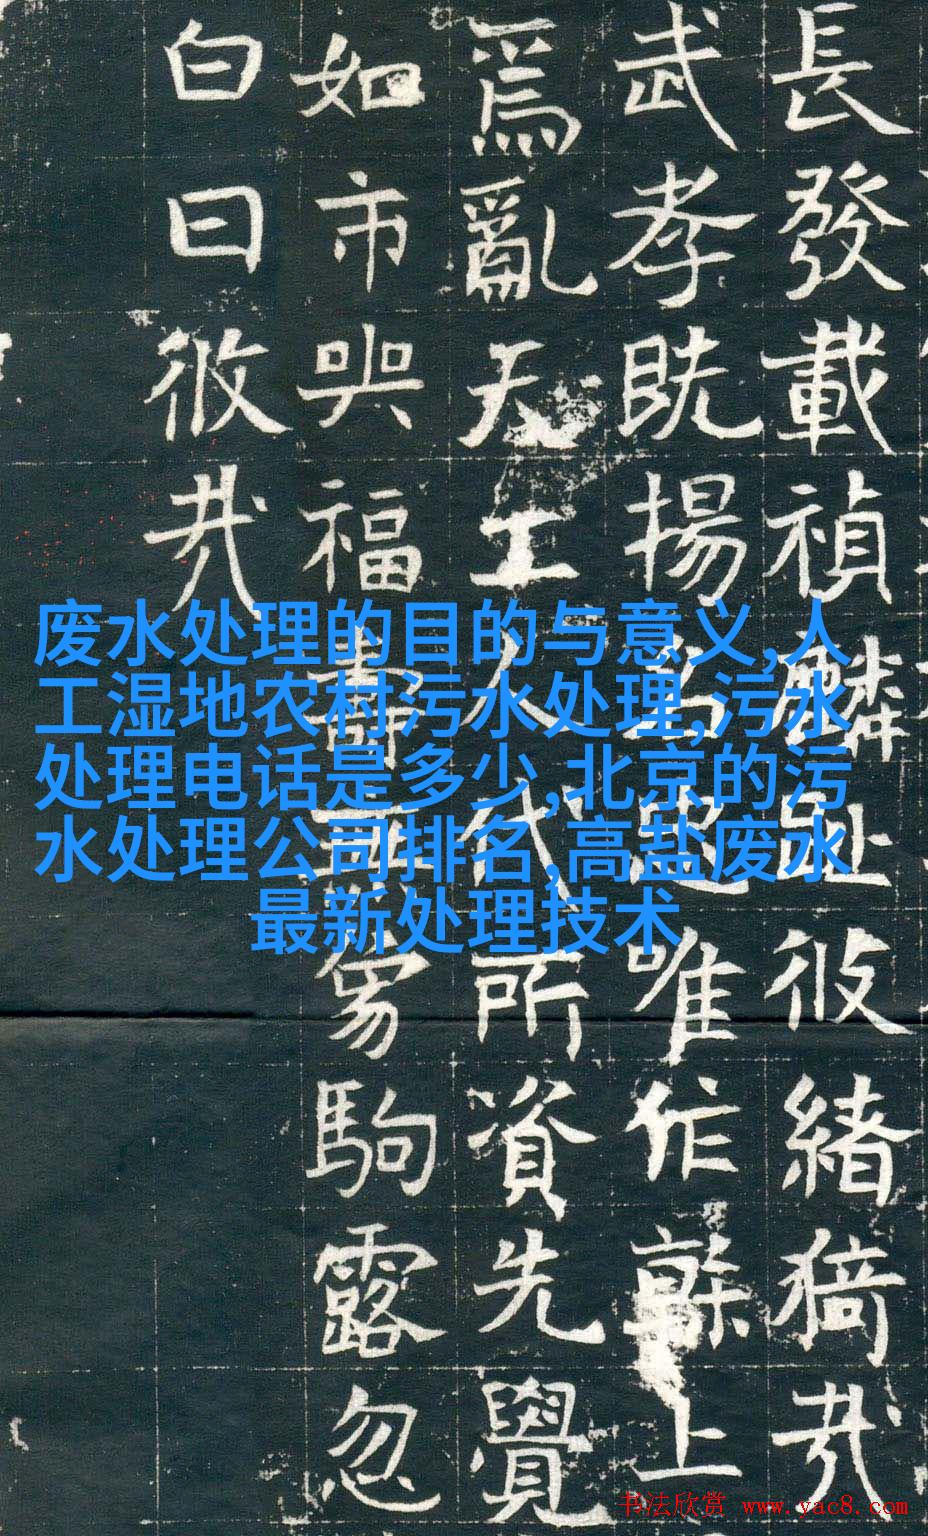 長發載禎麟趾彼緒猗哉
武孝既揚唯作上
爲亂天工人代所資先覺
如市與福駒露忽
白日哉
废水处理的目的与意义,人
工湿地农村污水处理,污水
处理电话是多少,北京的污
水处理公司排名,高盐废水
最新处理技术
书法欣赏 www.yac8.com